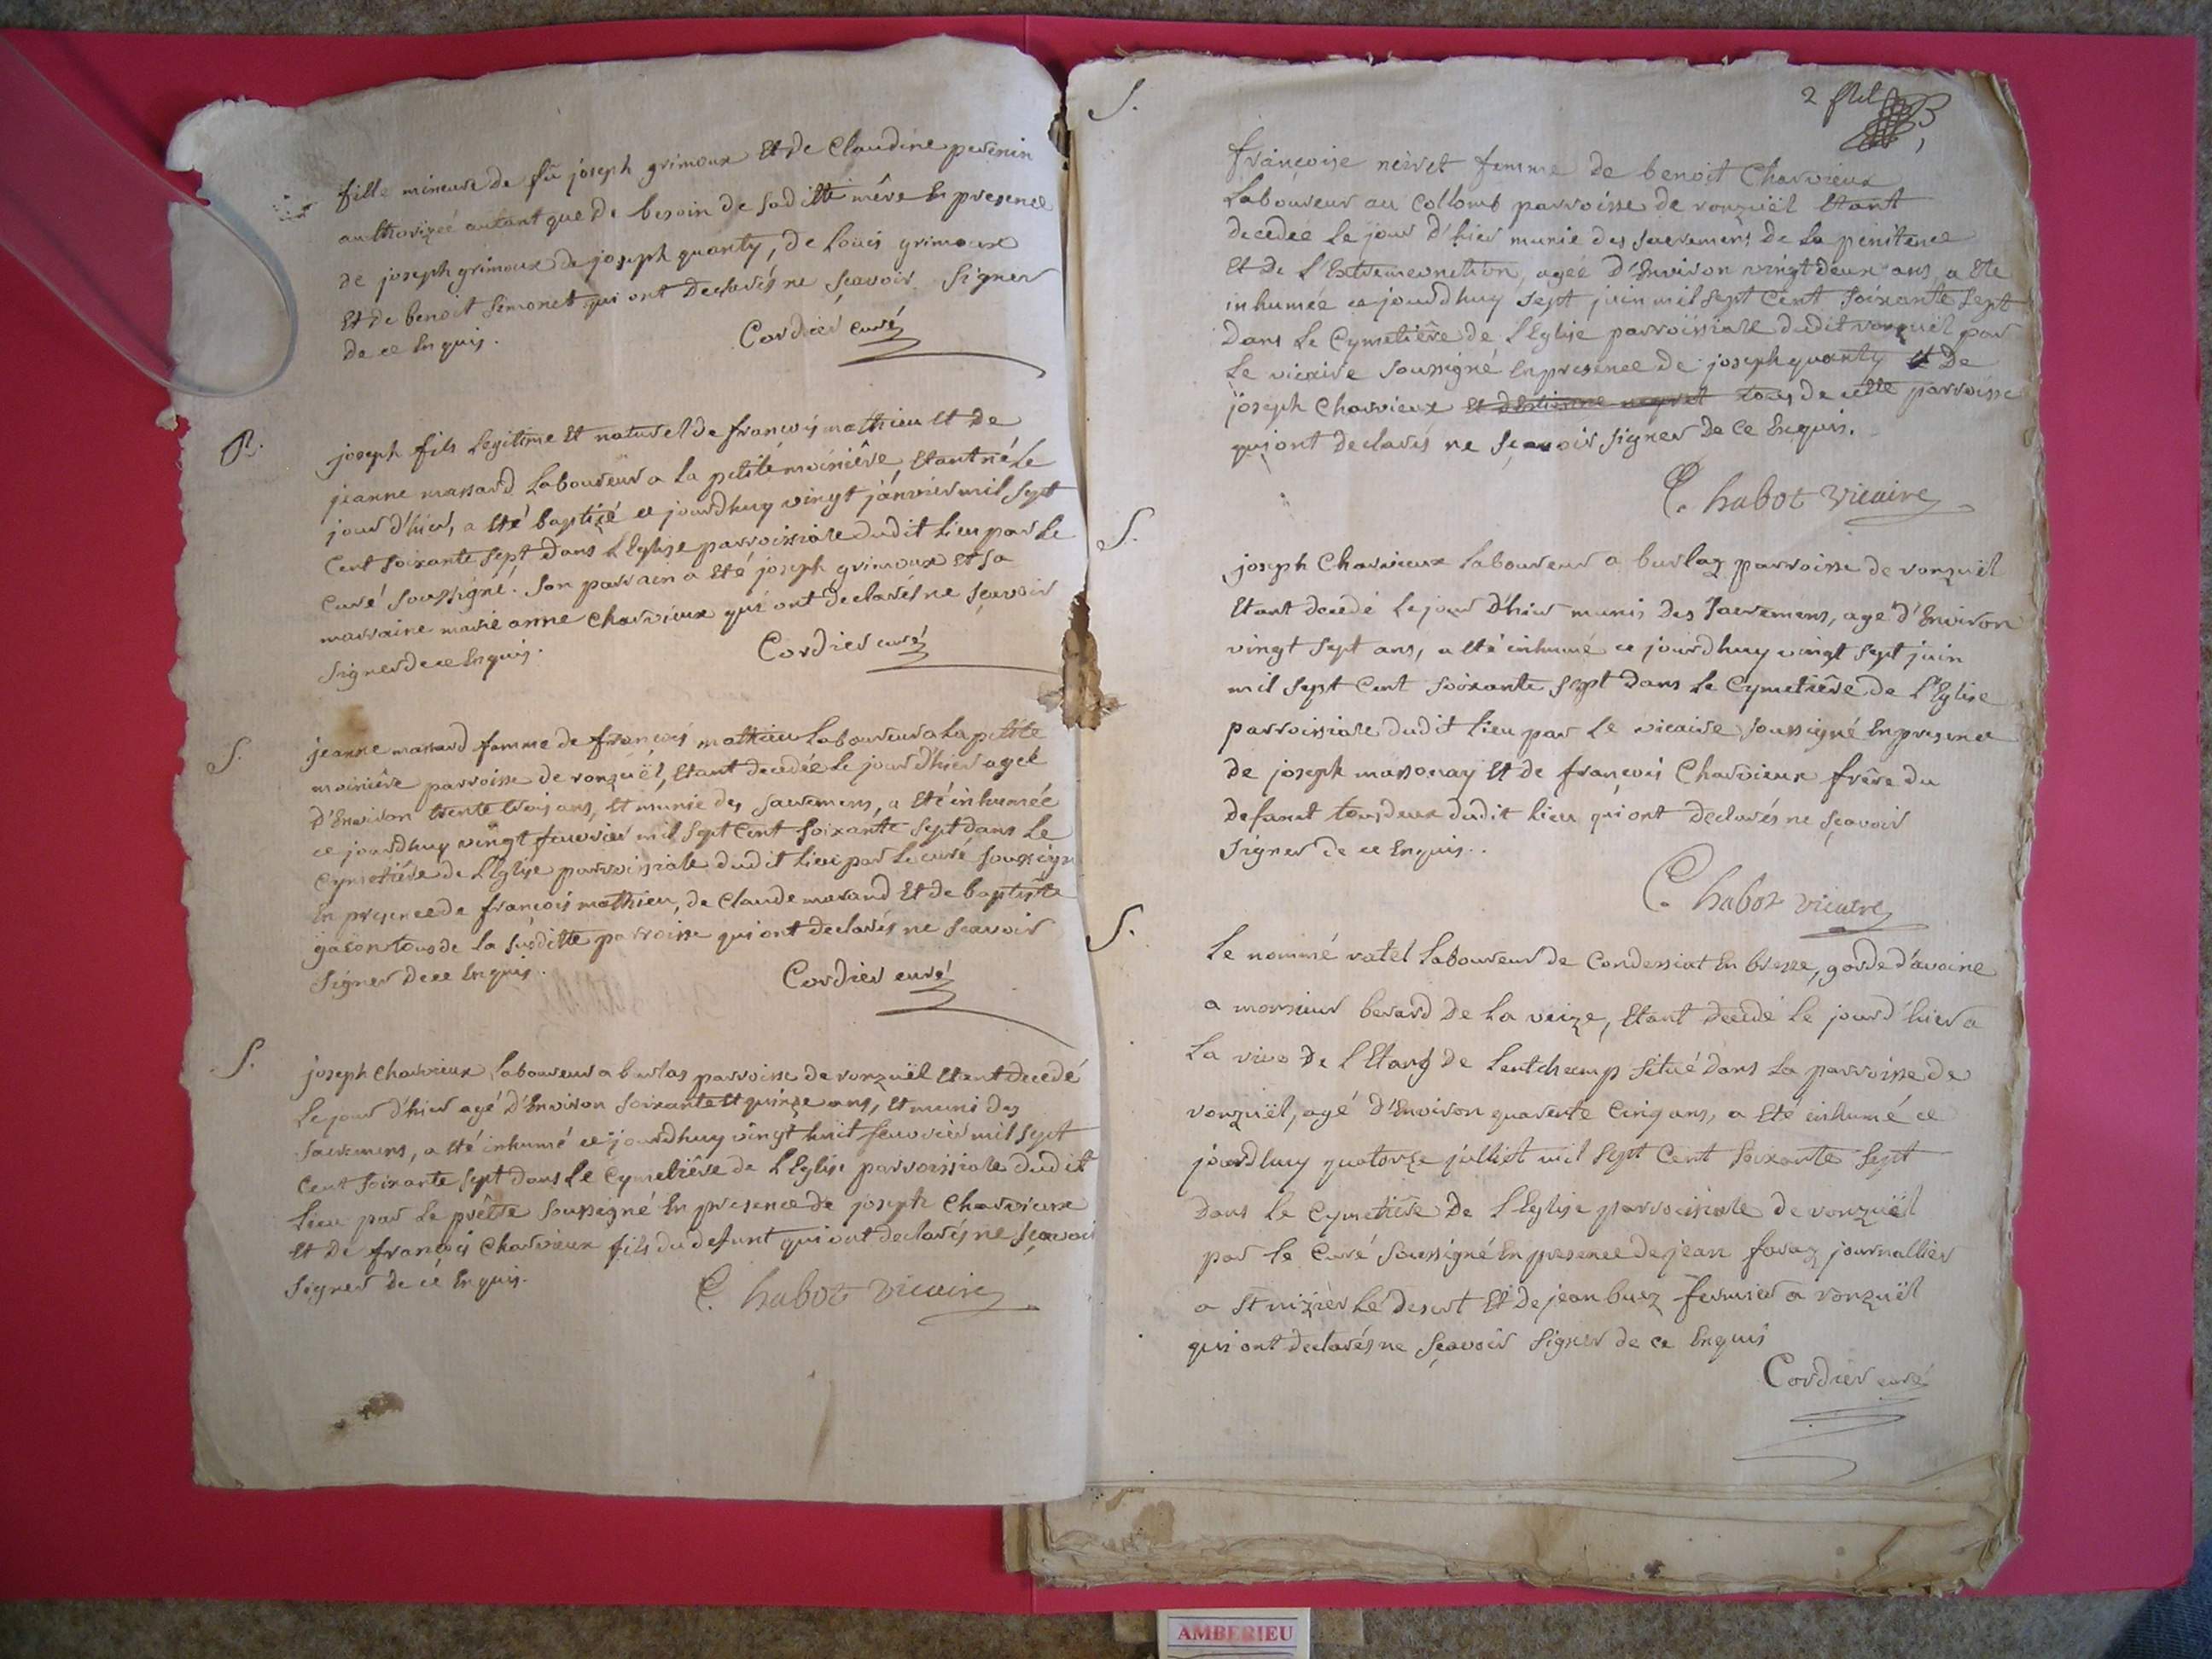 fille mineure de fû joseph grimoux Et de Claudine pervenin
authorizeé autant que de besoin de saditte mêre En presence
de joseph grimoux de joseph quanty, de Loüis grimoux
Et de benoit Simonet qui ont declarés ne sçavoir signer
de ce Enquis.
Cordier curé
B.
joseph fils Legitime Et naturel de françois mathieu Et de
jeanne massard Laboureur a la petite moiniêre, Etant né Le
jour d'hier, a Eté baptizé ce jourdhuy vingt janvier mil sept
Cent soixante sept dans L'Eglise parroissiale dudit Lieu par Le
Curé soussigné. son parrain a Eté joseph grimoux Et sa
marraine marie anne Charvieux qui ont declarés ne sçavoir
signer de ce Enquis.
Cordier curé
S.
jeanne massard femme de françois mathieu Laboureur a La petite
moiniêre parroisse de ronzuël, Etant decedée Le jour d'hier ageé
d'Environ trente trois ans, Et munie des sacremens, a Eté inhumée
ce jourdhuy vingt fevrier mil sept Cent soixante sept dans Le
Cymetiêre de L'Eglise parroissiale dudit Lieu par Le curé soussigné
En presence de françois mathieu, de Claude marand Et de baptiste
gacon tous de La susditte parroisse qui ont declarés ne sçavoir
signer de ce Enquis.
Cordier curé
S.
joseph Charvieux Laboureur a burlas parroisse de ronzuël Etant decedé
Le jour d'hier agé d'Environ soixante Et quinze ans, Et muni des
sacremens, a Eté inhumé ce jourdhuy vingt huit fevrier mil sept
Cent soixante sept dans Le Cymetiêre de L'Eglise parroissiale dudit
Lieu par Le prêtre soussigné En presence de joseph Charvieux
Et de françois Charvieux fils du defunt qui ont declarés ne sçavoir
signer de ce Enquis.
C. habot vicaire
2
S.
françoise neivet femme de benoit Charvieux
Laboureur au Collomb parroisse de ronzuël Etant
decedée Le jour d'hier munie des sacremens de La penitence
Et de L'Extremeonction, ageé d'Environ vingt deux ans, a Eté
inhumée ce jourdhuy sept juin mil sept Cent soixante sept
Dans Le Cymetiêre de L'Eglise parroissiale dudit ronzuël par
Le vicaire soussigné En presence de joseph quanty Et De
joseph Charvieux tous de cette parroisse
qui ont declarés ne sçavoir signer De Ce Enquis.
C. habot vicaire
S.
joseph Charvieux Laboureur a burlaz parroisse de ronzuël
Etant decedé Le jour d'hier munis Des Sacremens, agé d'Environ
vingt sept ans, a Eté inhumé ce jourdhuy vingt sept juin
mil sept Cent soixante sept Dans Le Cymetiêre de L'Eglise
parroissiale dudit Lieu par Le vicaire soussigné En presence
de joseph massonay Et de françois Charvieux frêre du
defunt tous deux dudit Lieu qui ont declarés ne sçavoir
signer de ce Enquis.
C. habot vicaire
S.
Le nommé ratel Laboureur de Condessiat En bresse, garde d'avoine
a monsieur berard De La veize, Etant decedé Le jourd'hier a
La rive De L'Etang de Lentchamp situé dans La parroisse de
ronzuël, agé d'Environ quarente Cinq ans, a Eté inhumé ce
jourdhuy quatorze julliet mil sept Cent soixante sept
dans Le Cymetiêre De L'Eglise parroissiale de ronzuël
par Le Curé soussigné En presence de jean favaz journallier
a St nizier Le desert Et de jean buez fermier a ronzuël
qui ont declarés ne sçavoir signer de ce Enquis
Cordier curé
AMBERIEU